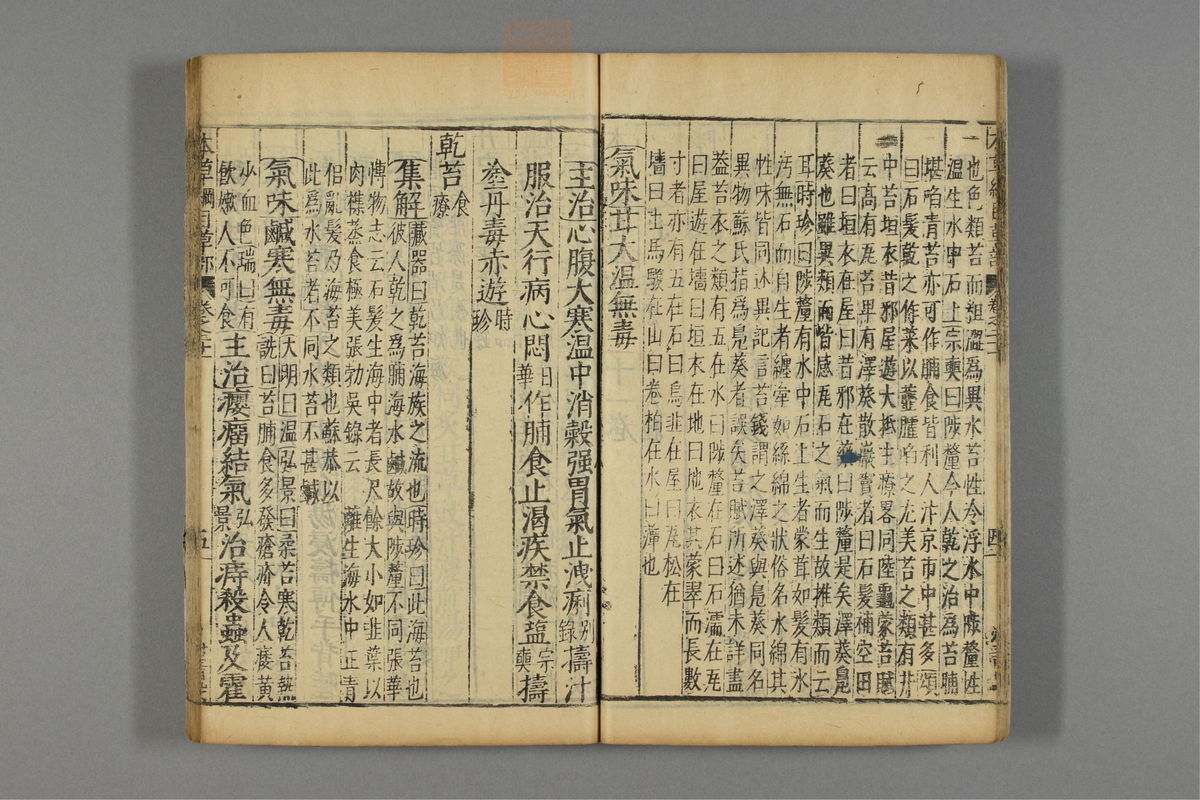 也色類苔而粗澀爲異水苔性冷浮水中陟釐性
溫生水中石上宗奭曰陟釐今人乾之治爲苔脯
堪啗青苔亦可作脯食皆利人汴京市中甚多頌
曰石髮乾之作菜以虀臛啗之尤美苔之類有井
中苔垣衣昔邪屋遊大抵主療畧同陸龜蒙苔賦
云高有瓦苔卑有澤葵散巖竇者曰石髮補空田
者曰垣衣在屋曰昔邪在藥曰陟釐是矣澤葵鳧
葵也雖異類而皆感瓦石之氣而生故推類而云
耳時珍曰陟釐有水中石上生者蒙茸如髮有水
汚無石而自生者纏牽如絲綿之狀俗名水綿其
性味皆同述異記言苔錢謂之澤葵與鳧葵同名
異物蘇氏指爲鳧葵者誤矣苔賦所述猶未詳盡
蓋苔衣之類有五在水曰陟釐在石曰石濡在瓦
曰屋遊在墻曰垣衣在地曰地衣其蒙翠而長數
寸者亦有五在石曰烏韭在屋曰瓦松在
墻曰土馬騣在山曰卷柏在水曰藫也
氣味甘大溫無毒
主治心腹大寒溫中消穀强胃氣止洩痢别錄擣汁
服治天行病心悶日華作脯食止渴疾禁食鹽宗奭擣
塗丹毒赤遊時珍
乾苔食療
集解藏器曰乾苔海族之流也時珍曰此海苔也
彼人乾之爲脯海水鹹故與陟釐不同張華
博物志云石髮生海中者長尺餘大小如韭葉以
肉雜蒸食極美張勃吳錄云䕲生海水中正青
侣亂髮乃海苔之類也蘇恭以
此爲水苔者不同水苔不甚鹹
氣味鹹寒無毒大明曰溫弘景曰柔苔寒乾苔熱
詵曰苔脯食多發瘡疥令人痿黃
少血色瑞曰有
飲嗽人不可食主治癭瘤結氣弘景治痔殺蟲及霍
本草綱目草部
卷之二十一
五